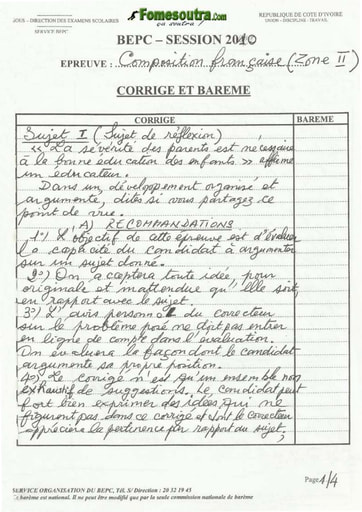 Fomesoutra.com
ça soutra !
JOUS - DIRECTION DES EXAMENS SCOLAIRES
SERVICE BEPC
REPUBLIQUE DE COTE D'IVOIRE
UNION - DISCIPLINE - TRAVAIL
BEPC – SESSION 2010
EPREUVE : Composition française (Zone II)
CORRIGE ET BAREME
CORRIGE
BAREME
Sujet I (Sujet de réflexion)
« La sévérité des parents est nécessaire
à la bonne éducation des enfants » affirme
un éducateur.
Dans un développement organisé et
argumenté, dites si vous partagez ce
point de vue.
A) RECOMMANDATIONS
1°) L'objectif de cette épreuve est d'évaluer
la capacité du candidat à argumenter
sur un sujet donné.
2°) On acceptera toute idée, pour
originale et inattendue qu'elle soit,
en rapport avec le sujet.
3°) L'avis personnel du correcteur
sur le problème posé ne doit pas entrer
en ligne de compte dans l'évaluation.
On évaluera la façon dont le candidat
argumente sa propre position.
4°) Le corrigé n'est qu'un ensemble non
exhaustif de suggestions. Le candidat peut
fort bien exprimer des idées qui ne
figurent pas dans ce corrigé et dont le correcteur
appréciera la pertinence par rapport au sujet,
Page 1/4
SERVICE ORGANISATION DU BEPC, Tél. S/ Direction : 20 32 19 45
e barème est national. Il ne peut être modifié que par la seule commission nationale de barème